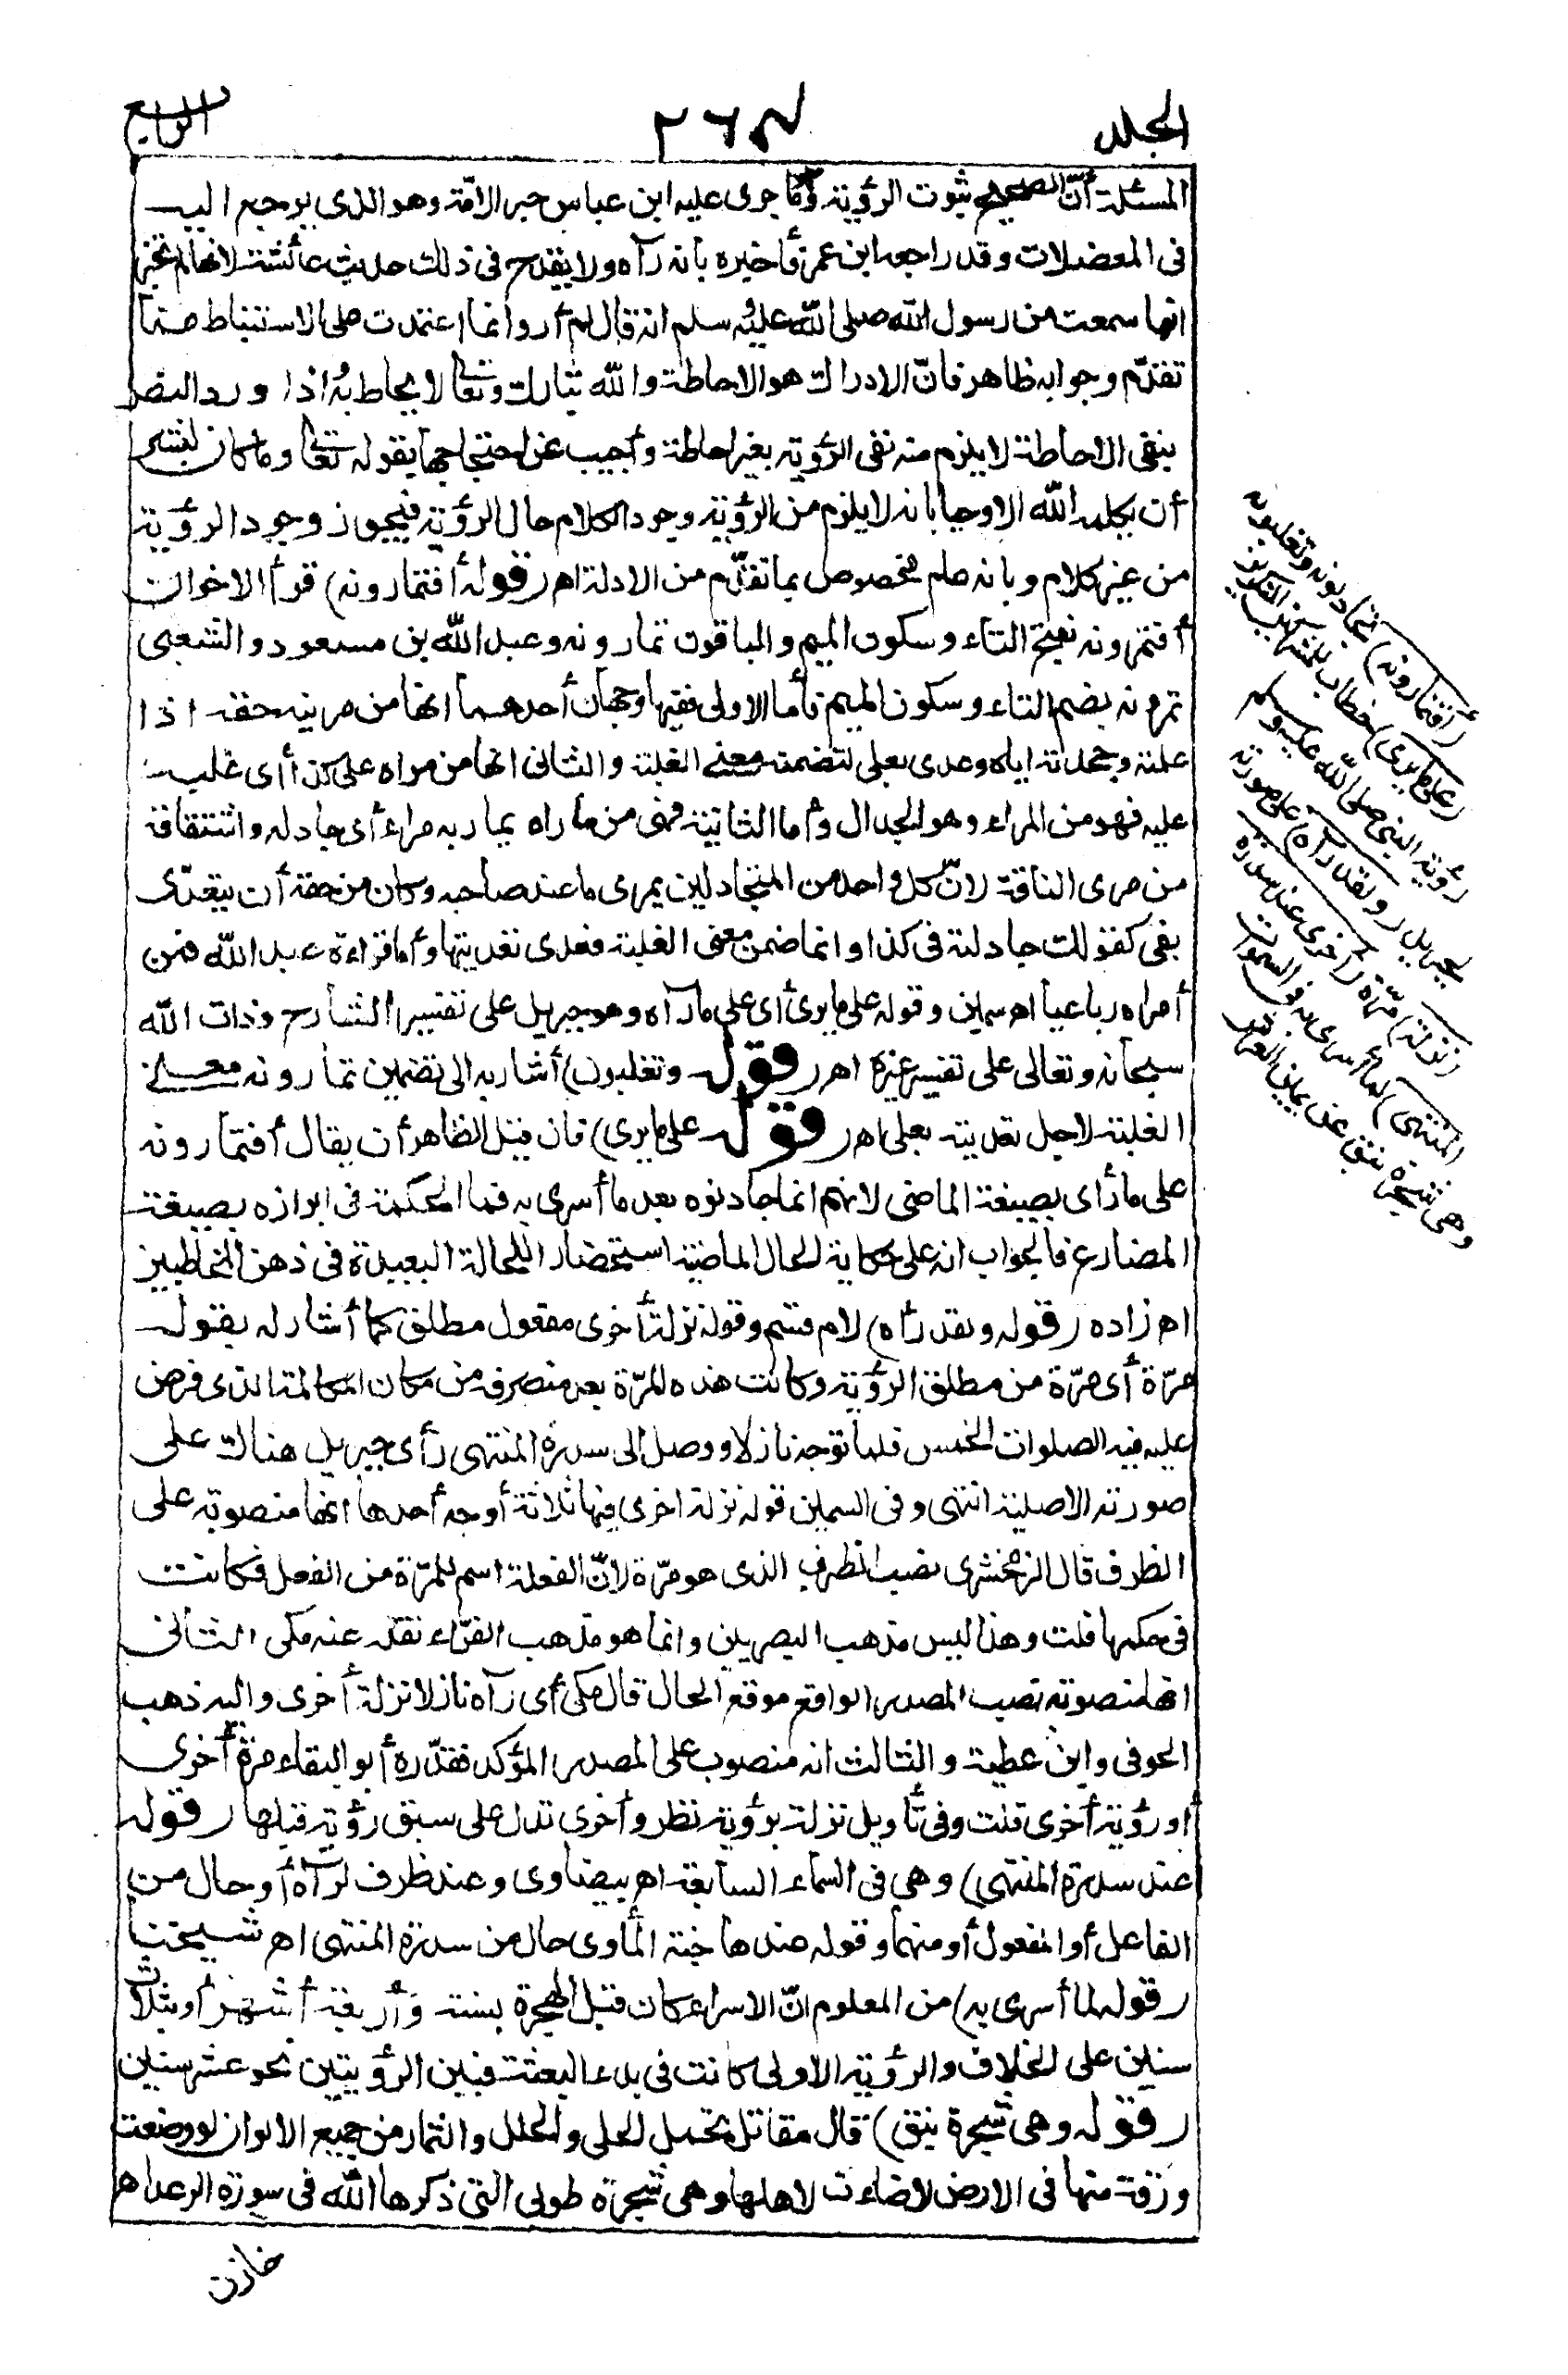 الجلد ٢٦٨ الرابع
المسئلة أنّ الصحيح ثبوت الرؤية وكما جرى عليه ابن عباس حبر الامّة وهو الذى يرجع اليه
فى المعضلات وقد راجعه ابن عمر فأخبره بانه رآه ولا يقدح فى ذلك حديث عائشة لانها لم تخبر
انها سمعت من رسول الله صلى الله عليه وسلم انه قال لم أر وانما اعتمدت على الاستنباط مما
تقدّم وجوابه ظاهر فانّ الادراك هو الاحاطة والله تبارك وتعالى لا يحاط به اذا ورد النص
بنفى الاحاطة لا يلزم منه نفى الرؤية بغير احاطة وأجيب عن احتجاجها بقوله تعالى وما كان لبشر
أن يكلمه الله الا وحيا بانه لا يلزم من الرؤية وجود الكلام حال الرؤية فيجوز وجود الرؤية
من غير كلام وبانه عام مخصوص بما تقدّم من الادلة اهـ (قوله أفتمارونه) قرأ الاخوان
أفتمرونه بفتح التاء وسكون الميم والباقون تمارونه وعبد الله بن مسعود والشعبى
تمرونه بضم التاء وسكون الميم فأما الاولى ففيها وجهان أحدهما انها من مريته حقه اذا
علمته وجحدته اياه وعدى بعلى لتضمنه معنى الغلبة والثانى انها من مراه على كذا أى غلبه
عليه فهو من المراء وهو الجدال وأما الثانية فهى من ماراه يماريه مراء أى جادله واشتقاقه
من مرى الناقة لانّ كل واحد من المتجادلين يمرى ما عند صاحبه وكان من حقه أن يتعدّى
بفى كقولك جادلته فى كذا وانما ضمن معنى الغلبة فعدى تعديتها وأما قراءة عبد الله فمن
أمراه رباعيا اهـ سمين وقوله على ما يرى أى على ما رآه وهو جبريل على تفسير الشارح وذات الله
سبحانه وتعالى على تفسير غيره اهـ (قوله وتغلبون) أشار به الى تضمين تمارونه معنى
الغلبة لاجل تعديته بعلى اهـ (قوله على ما يرى) فان قيل الظاهر أن يقال أفتمارونه
على ما رأى بصيغة الماضى لانهم انما جادلوه بعد ما أسرى به فما الحكمة فى ابرازه بصيغة
المضارع فالجواب انه على حكاية الحال الماضية استحضارا للحالة البعيدة فى ذهن المخاطبين
اهـ زاده (قوله ولقد رآه) لام قسم وقوله نزلة أخرى مفعول مطلق كما أشار له بقوله
مرّة أى مرّة من مطلق الرؤية وكانت هذه المرّة بعد منصرفه من مكان المكالمة الذى فرض
عليه فيه الصلوات الخمس فلما توجه نازلا ووصل الى سدرة المنتهى رأى جبريل هناك على
صورته الاصلية انتهى وفى السمين قوله نزلة اخرى فيها ثلاثة أوجه أحدها انها منصوبة على
الظرف قال الزمخشرى نصب الظرف الذى هو مرّة لانّ الفعلة اسم للمرّة من الفعل فكانت
فى حكمها قلت وهذا ليس مذهب البصريين وانما هو مذهب الفرّاء نقله عنه مكى الثانى
انها منصوبة نصب المصدر الواقع موقع الحال قال مكى أى رآه نازلا نزلة أخرى واليه ذهب
الحوفى وابن عطية والثالث انه منصوب على المصدر المؤكد فقدّره أبو البقاء مرّة أخرى
أو رؤية أخرى قلت وفى تأويل نزلة برؤية نظر وأخرى تدل على سبق رؤية قبلها (قوله
عند سدرة المنتهى) وهى فى السماء السابعة اهـ بيضاوى وعند ظرف لرآه أو حال من
الفاعل أو المفعول أو منهما وقوله عندها جنة المأوى حال من سدرة المنتهى اهـ شيخنا
(قوله لما أسرى به) من المعلوم انّ الاسراء كان قبل الهجرة بسنة وأربعة أشهر أو بثلاث
سنين على الخلاف والرؤية الاولى كانت فى بدء البعثة فبين الرؤيتين نحو عشر سنين
(قوله وهى شجرة نبق) قال مقاتل تحمل الحلى والحلل والثمار من جميع الالوان لو وضعت
ورقة منها فى الارض لاضاءت لاهلها وهى شجرة طوبى التى ذكرها الله فى سورة الرعد اهـ
خازن
(أفتمارونه) تجادلونه وتغلبونه
(على ما يرى) خطاب للمشركين المنكرين
رؤية النبى صلى الله عليه وسلم
لجبريل (ولقد رآه) على صورته
(نزلة) مرّة (أخرى عند سدرة
المنتهى) لما أسرى به فى السموات
وهى شجرة نبق عن يمين العرش